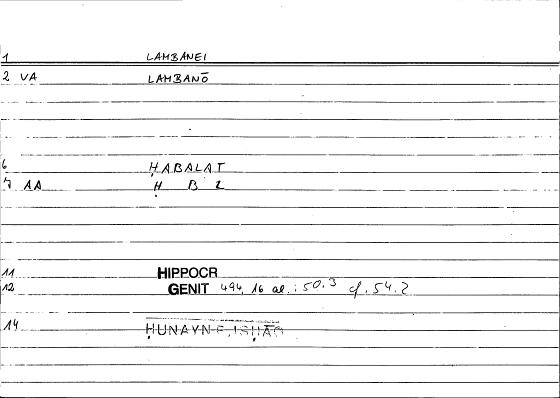 1 LAMBANEI
2 VA LAMBANŌ
6 ḤABALAT
7 AA Ḥ B L
11 HIPPOCR
12 GENIT 494, 16 al.: 50.3 cf. 54.2
14 ḤUNAYN-E, ISḤĀQ